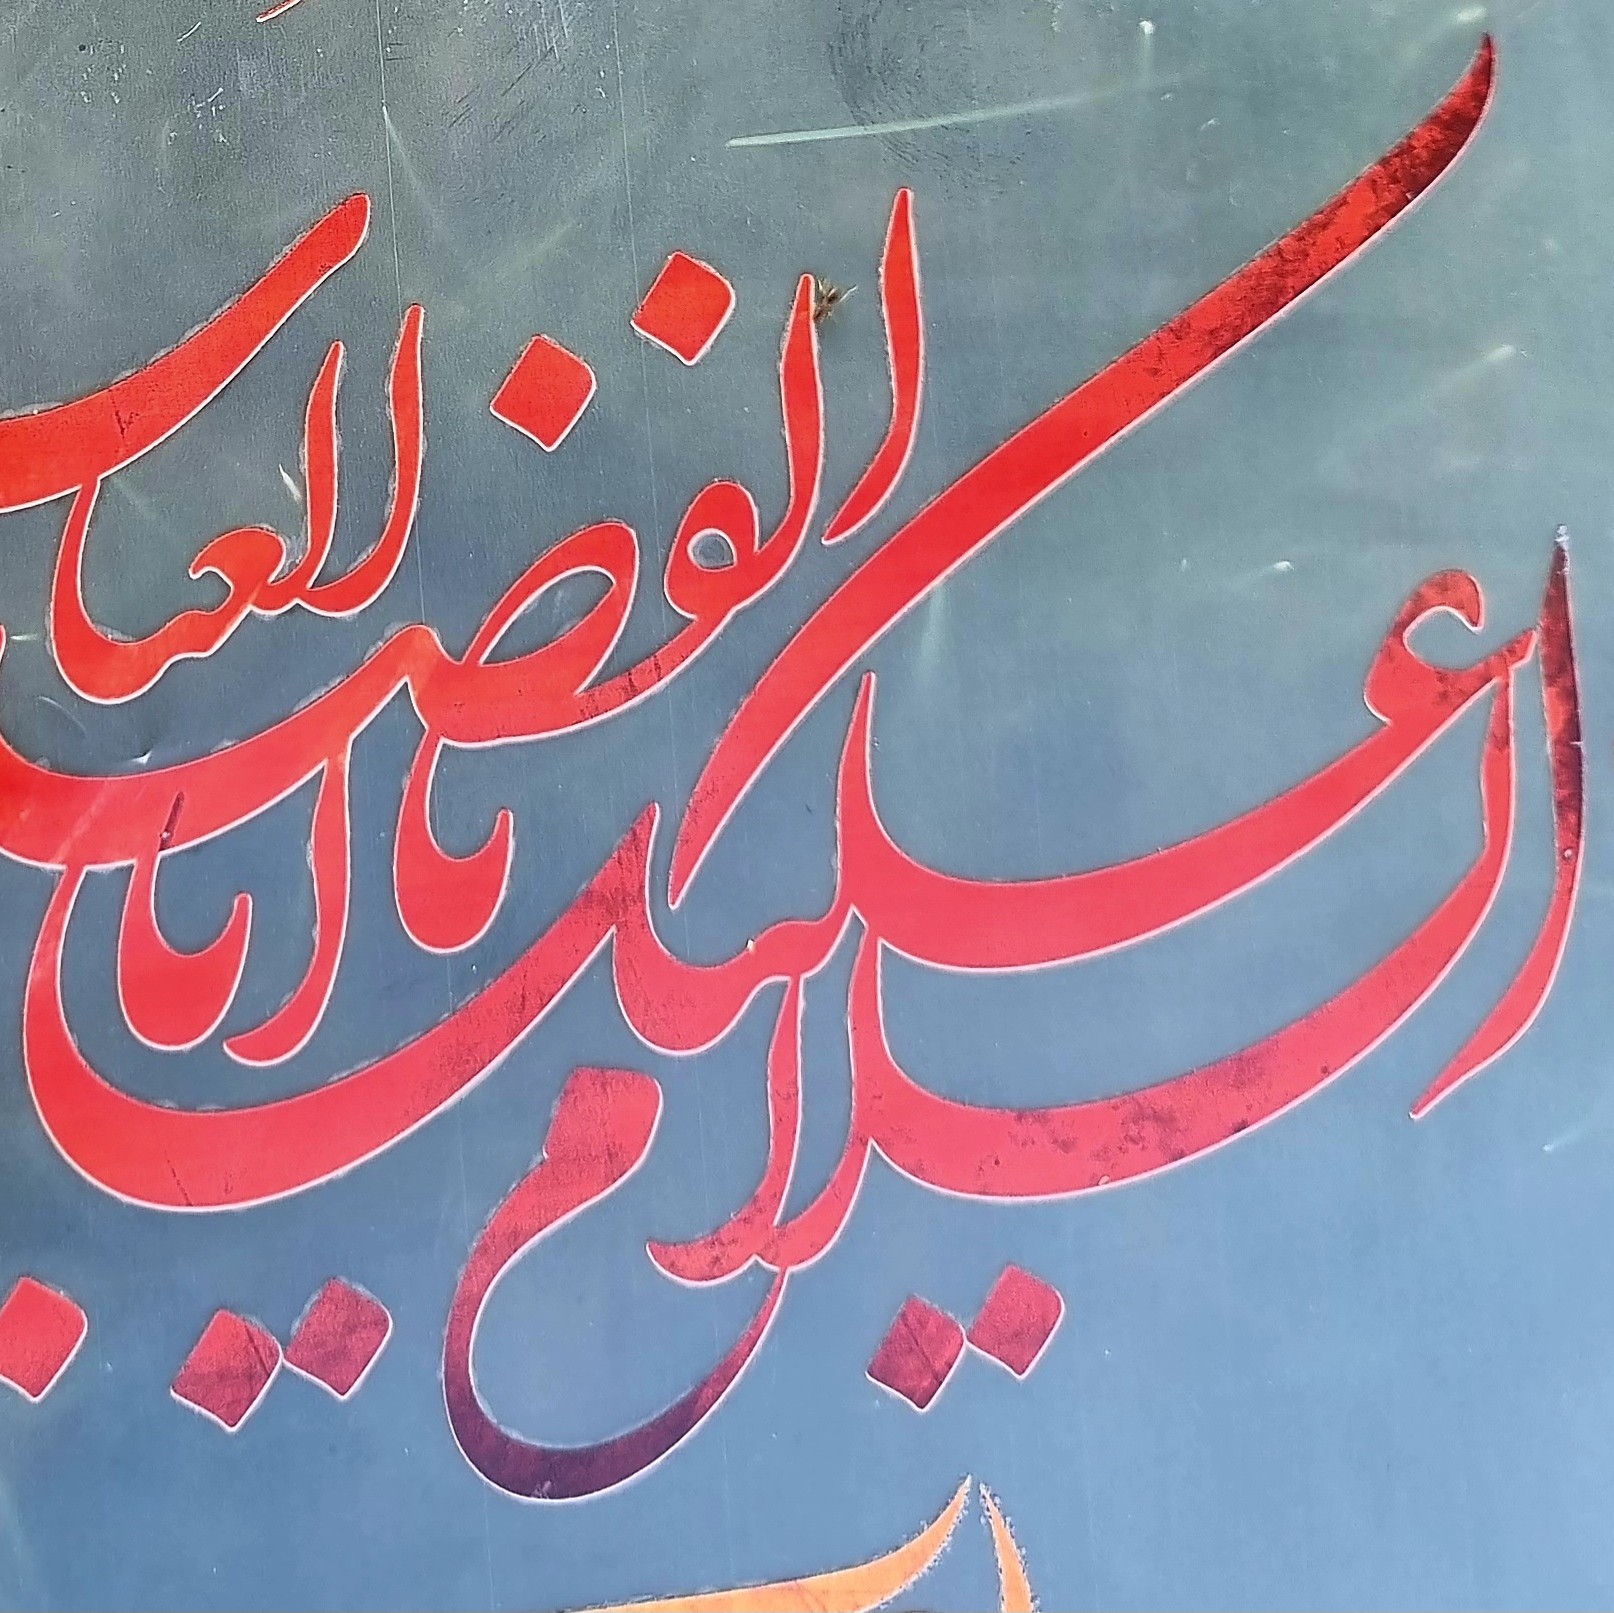 السلام علیک یا ابا الفضل العباس